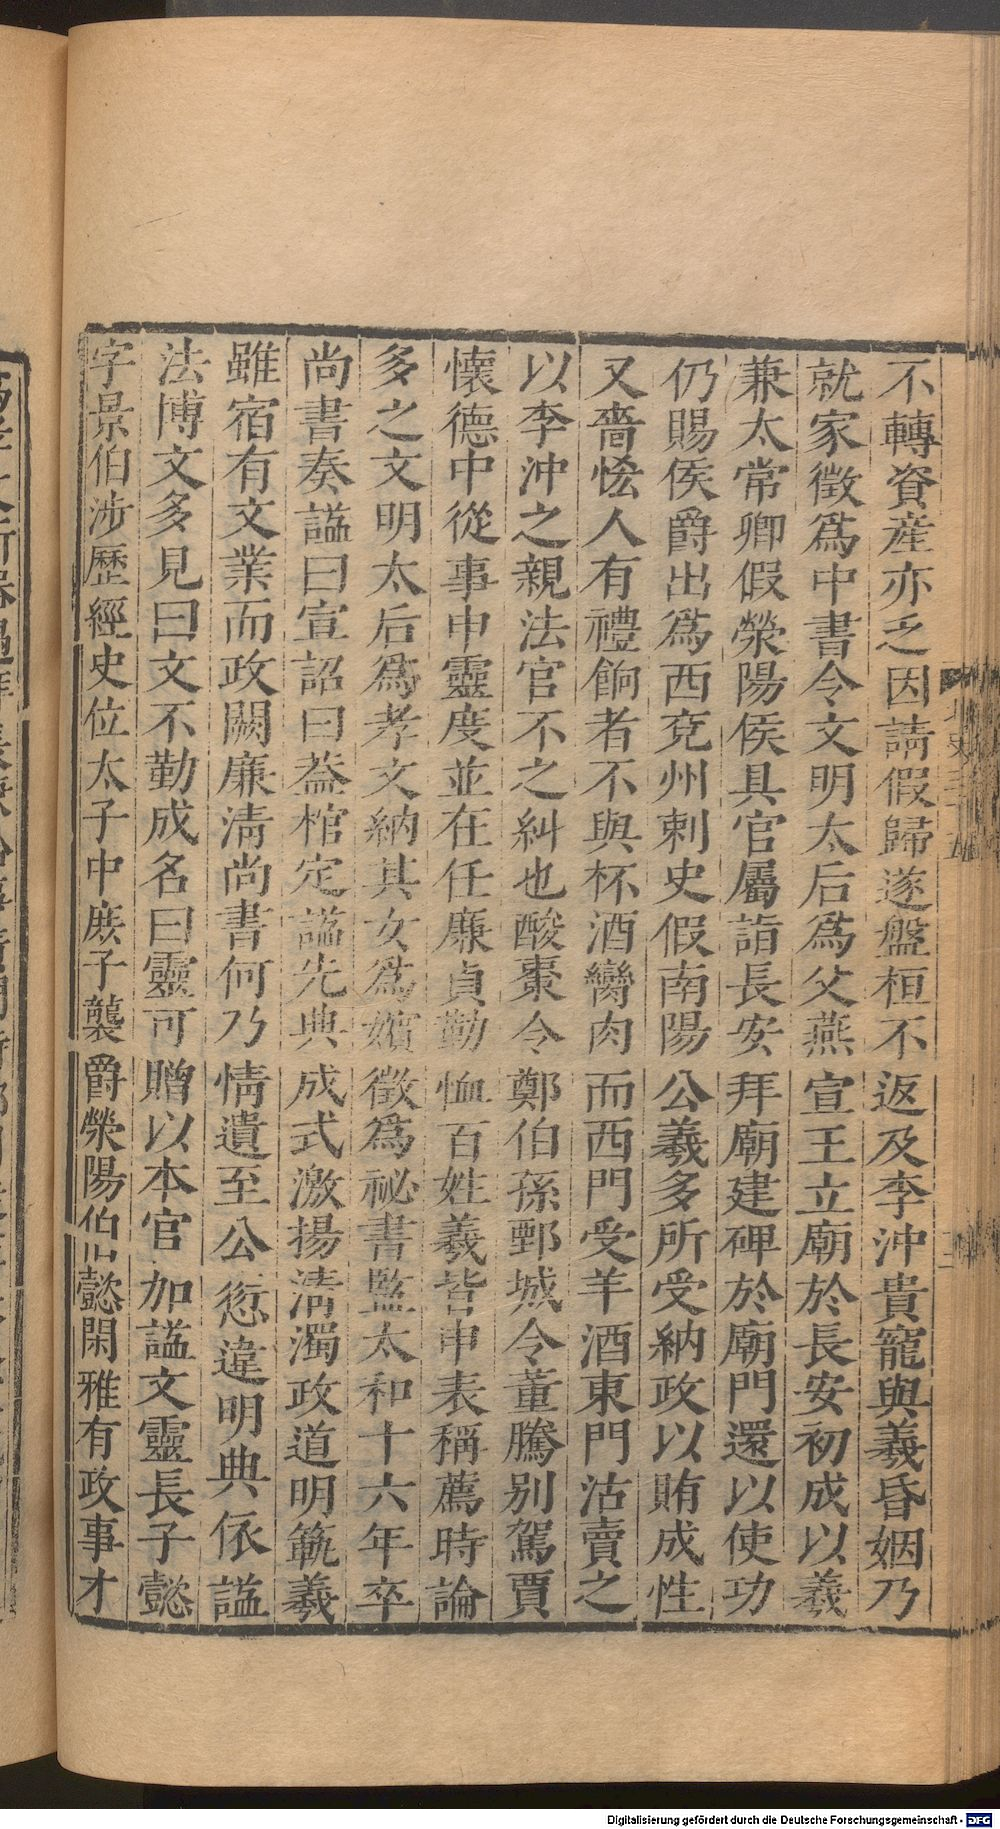 不轉資産亦乏因請假歸遂盤桓不返及李沖貴寵與羲昏姻乃
就家徵爲中書令文明太后爲父燕宣王立廟於長安初成以羲
兼太常卿假滎陽侯具官屬詣長安拜廟建碑於廟門還以使功
仍賜侯爵出爲西兗州刺史假南陽公羲多所受納政以賄成性
又嗇恡人有禮餉者不與杯酒臠肉而西門受羊酒東門沽賣之
以李沖之親法官不之糾也酸棗令鄭伯孫鄄城令董騰别駕賈
懷德中從事申靈度並在任廉貞勤恤百姓羲皆申表稱薦時論
多之文明太后爲孝文納其女爲嬪徵爲祕書監太和十六年卒
尚書奏謚曰宣詔曰蓋棺定謚先典成式激揚清濁政道明範羲
雖宿有文業而政闕廉清尚書何乃情遺至公愆違明典依謚
法博文多見曰文不勤成名曰靈可贈以本官加謚文靈長子懿
字景伯涉歷經史位太子中庶子襲爵滎陽伯懿閑雅有政事才
北史三十五
Digitalisierung gefördert durch die Deutsche Forschungsgemeinschaft - DFG